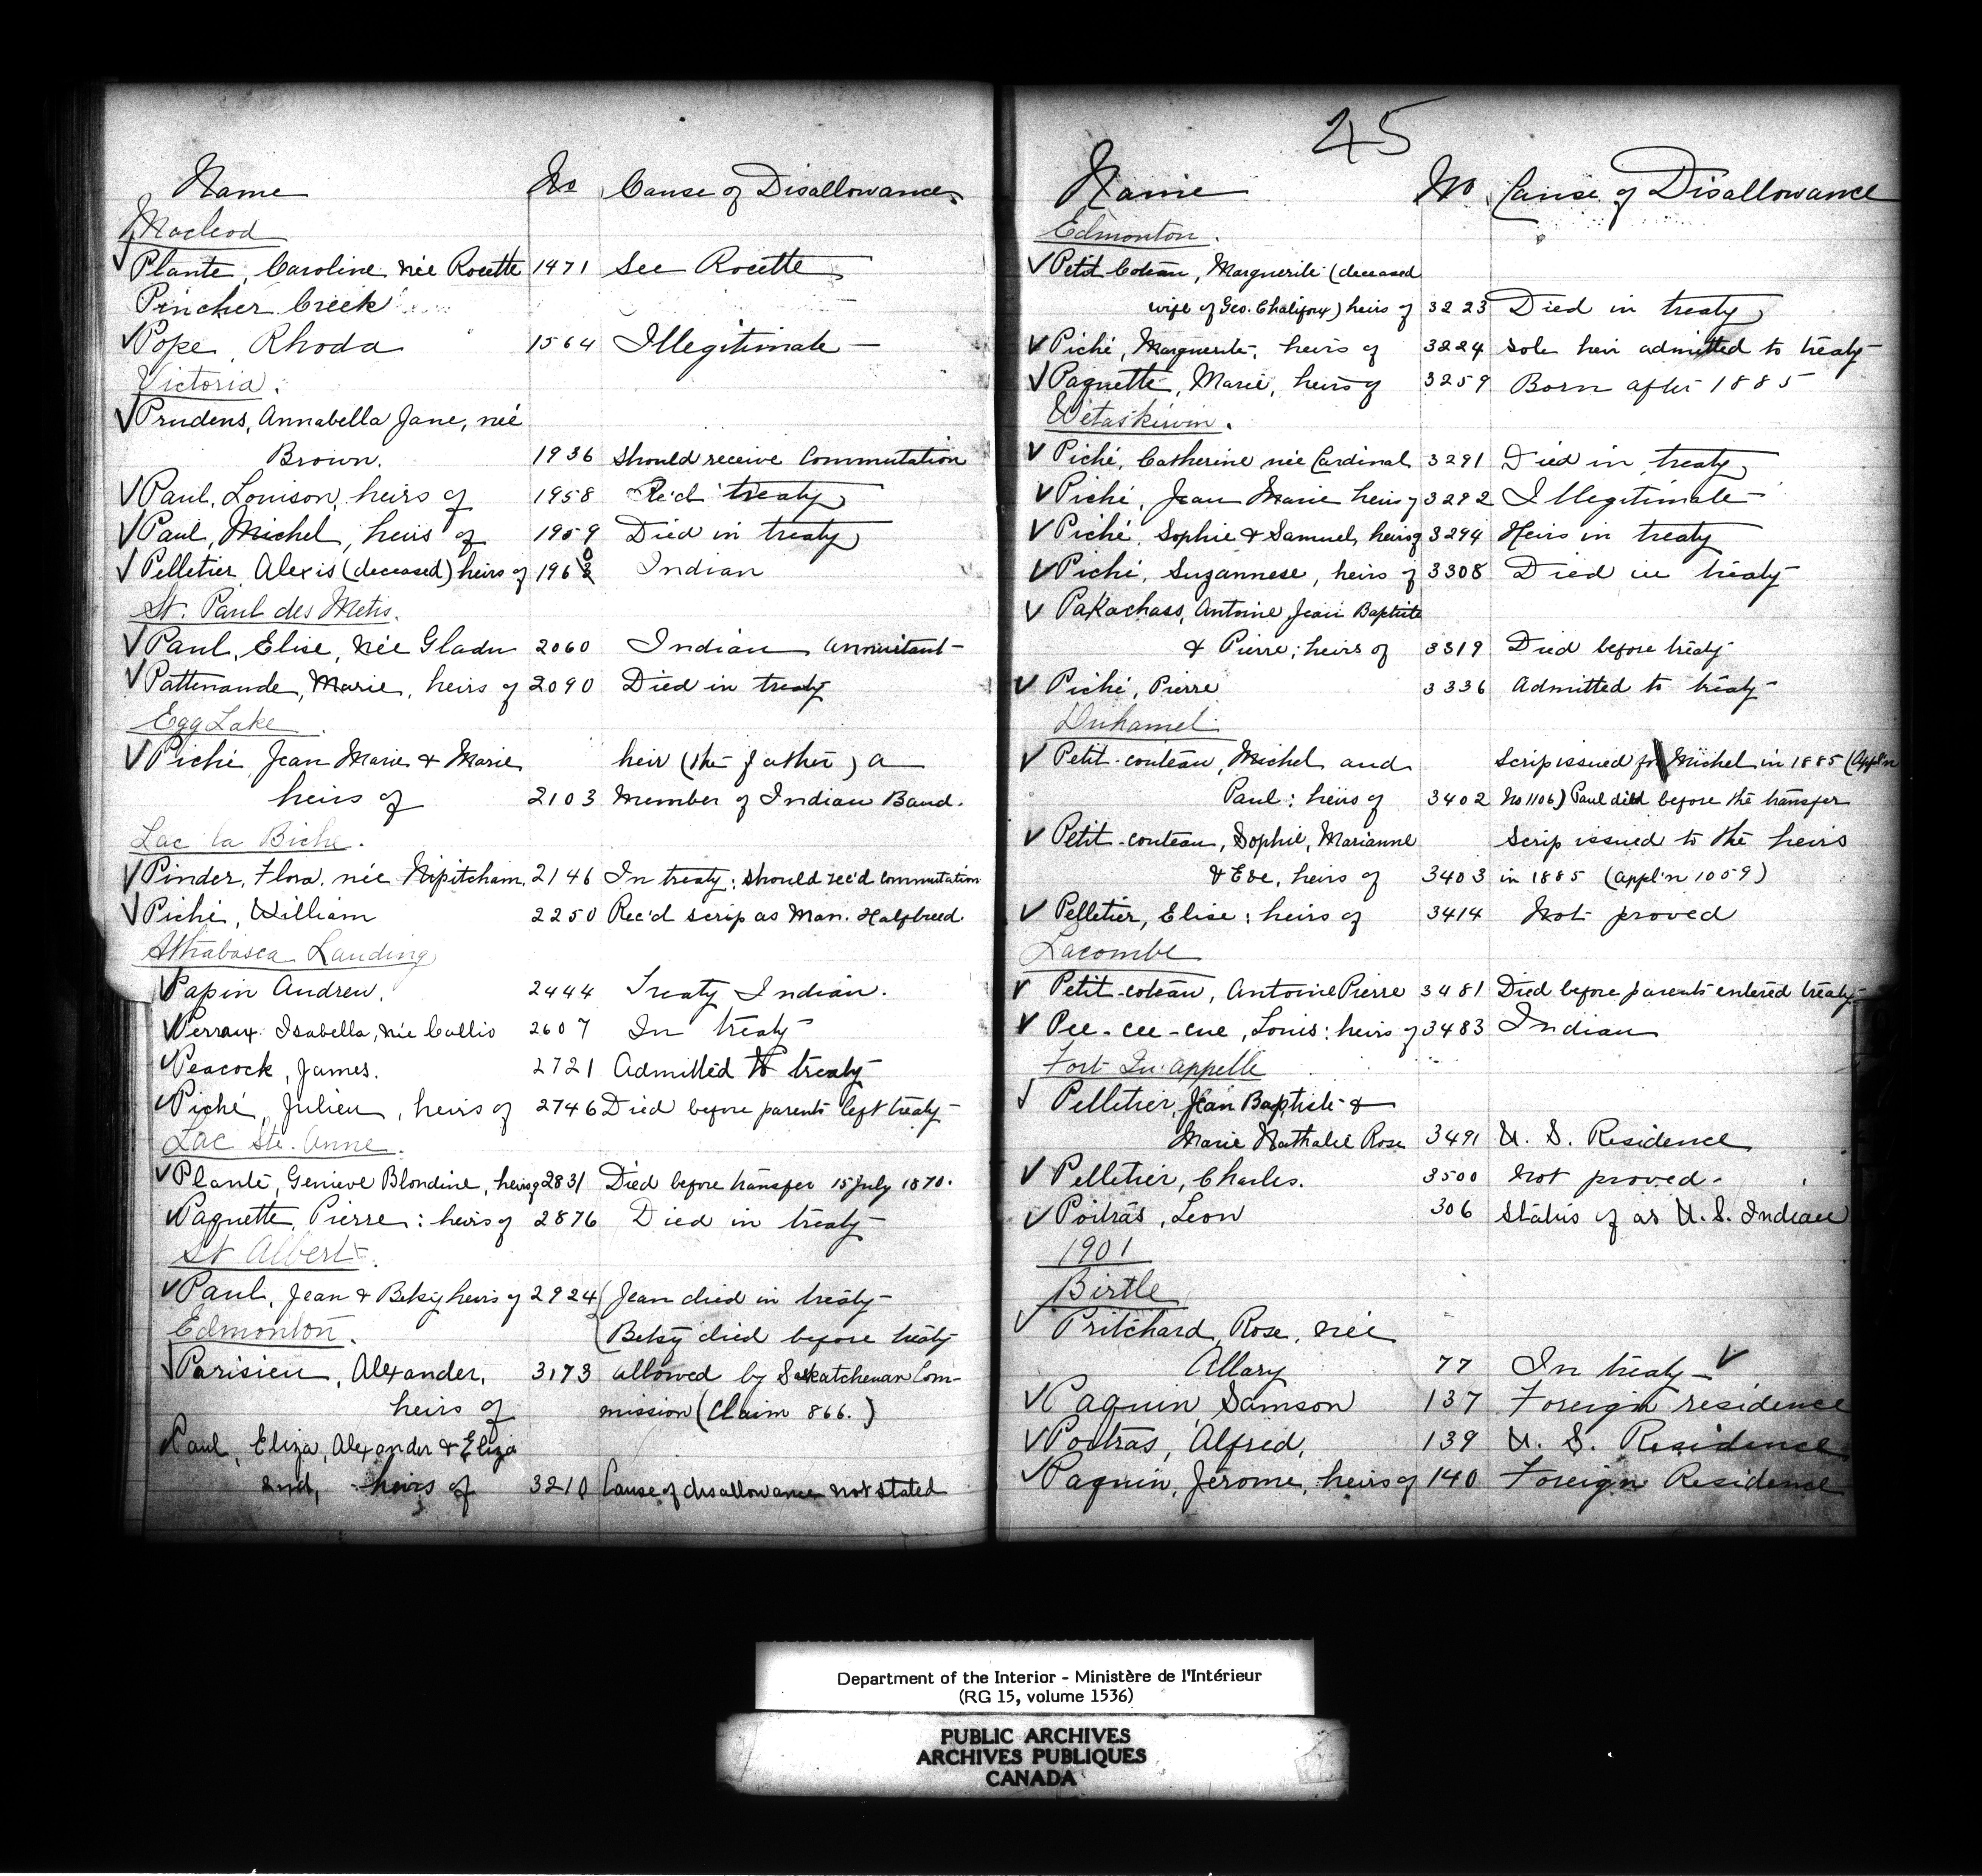 Name No Cause of Disallowance
Macleod
✓ Plante, Caroline née Rocette 1471 See Rocette
Pincher Creek
✓ Pope, Rhoda 1564 Illegitimate
Victoria.
✓ Prudens, Annabella Jane, neé
Brown. 1936 Should receive Commutation
✓ Paul, Louison, heirs of 1958 Rec'd treaty
✓ Paul, Michel, heirs of 1959 Died in treaty
✓ Pelletier, Alexis (deceased) heirs of 1960 Indian
St. Paul des Metis.
✓ Paul, Elise, née Gladu 2060 Indian annuitant
✓ Pattenaude, Marie, heirs of 2090 Died in treaty
Egg Lake
✓ Piché Jean Marie & Marie heir (the father) a
heirs of 2103 Member of Indian Band.
Lac la Biche.
✓ Pinder, Flora, née Nipitcham, 2146 In treaty; should rec'd commutation
✓ Piché, William 2250 Rec'd scrip as Man. Halfbreed
Athabasca Landing
✓ Papin Andrew. 2444 Treaty Indian.
✓ Perraux Isabella, née Callis 2607 In treaty
✓ Peacock, James. 2721 Admitted to treaty
✓ Piché, Julien, heirs of 2746 Died before parents left treaty
Lac Ste. Anne.
✓ Plante, Genieve Blondine, heirs of 2831 Died before transfer 15 July 1870.
✓ Paquette, Pierre: heirs of 2876 Died in treaty
St Albert.
✓ Paul, Jean & Betsy heirs of 2924 ( Jean died in treaty
Edmonton. ( Betsy died before treaty
✓ Parisien, Alexander, 3173 allowed by Saskatchewan Com-
heirs of mission (Claim 866.)
Paul, Eliza, Alexander & Eliza
2nd, heirs of 3210 Cause of disallowance not stated
45
Name No Cause of Disallowance
Edmonton.
✓ Petit Coteau, Marguerite (deceased
wife of Geo. Chalifoux) heirs of 3223 Died in treaty
✓ Piché, Marguerite, heirs of 3224 Sole heir admitted to treaty
✓ Paquette, Marie, heirs of 3259 Born after 1885
Wetaskiwin.
✓ Piché, Catherine née Cardinal 3291 Died in treaty
✓ Piché, Jean Marie heirs of 3292 Illegitimate
✓ Piché, Sophie & Samuel, heirs of 3294 Heirs in treaty
✓ Piché, Suzannese, heirs of 3308 Died in treaty
✓ Pakachass, Antoine Jean Baptiste
& Pierre; heirs of 3319 Died before treaty
✓ Piché, Pierre 3336 Admitted to treaty
Duhamel.
✓ Petit-couteau, Michel and Scrip issued for Michel in 1885 (Appl'n
Paul: heirs of 3402 No 1106) Paul died before the transfer
✓ Petit-couteau, Sophie, Marianne Scrip issued to the heirs
& Eve, heirs of 3403 in 1885 (appl'n 1059)
✓ Pelletier, Elise: heirs of 3414 Not proved
Lacombe
✓ Petit-coteau, Antoine Pierre 3481 Died before parents entered treaty
✓ Pee-cee-cue, Louis: heirs of 3483 Indian
Fort Qu'appelle
✓ Pelletier, Jean Baptiste &
Marie Nathalie Rose 3491 U. S. Residence
✓ Pelletier, Charles. 3500 Not proved.
✓ Poitras, Leon 306 Status of as U. S. Indian
1901
Birtle
✓ Pritchard, Rose, née
Allary 77 In treaty ✓
✓ Paquin Samson 137 Foreign residence
✓ Poitras, Alfred, 139 U. S. Residence
✓ Paquin, Jerome, heirs of 140 Foreign Residence
Department of the Interior - Ministère de l'Intérieur
(RG 15, volume 1536)
PUBLIC ARCHIVES
ARCHIVES PUBLIQUES
CANADA